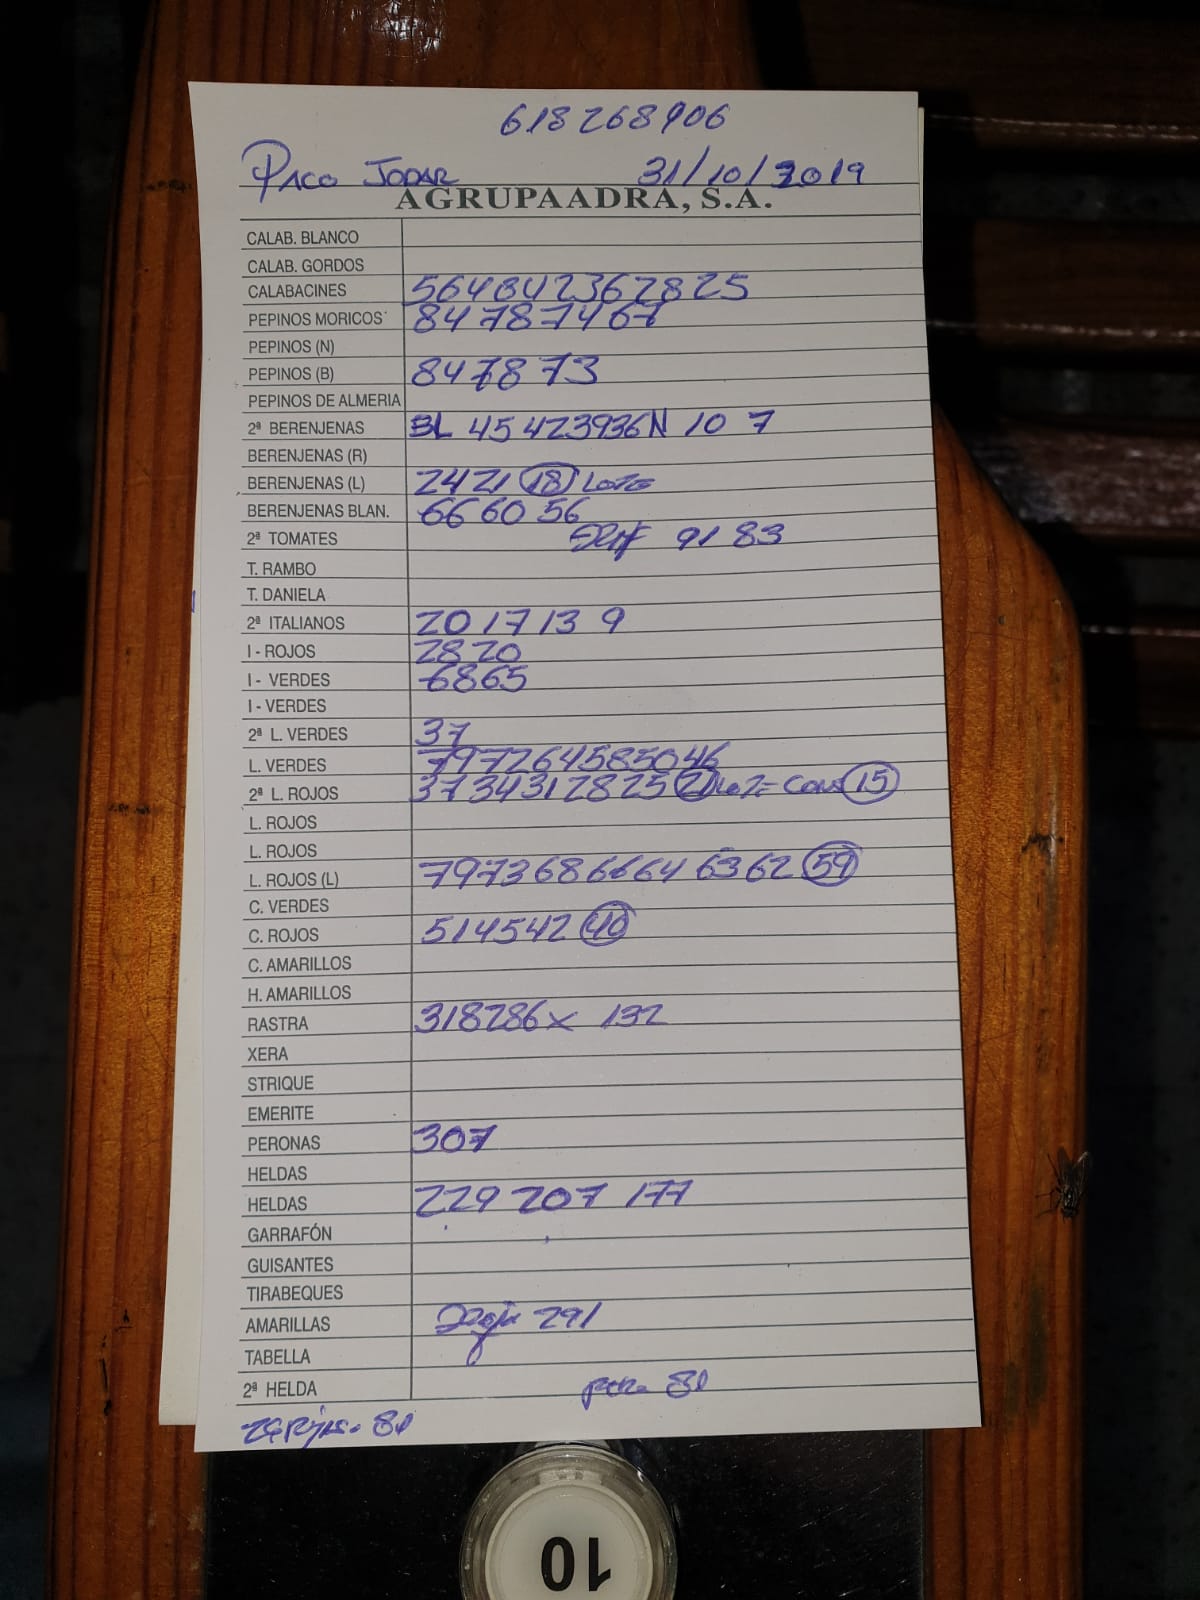 618268906
PACO JODAR 31/10/2019
AGRUPAADRA, S.A.
CALAB. BLANCO
CALAB. GORDOS
CALABACINES 56484723628 25
PEPINOS MORICOS 847874 67
PEPINOS (N)
PEPINOS (B) 847873
PEPINOS DE ALMERIA
2ª BERENJENAS BL 45 42 39 36 N 10 7
BERENJENAS (R)
BERENJENAS (L) 24 21 18
BERENJENAS BLAN. 66 60 56
2ª TOMATES 91 83
T. RAMBO
T. DANIELA
2ª ITALIANOS 20 17 13 9
I - ROJOS 28 20
I - VERDES 68 65
I - VERDES
2ª L. VERDES 37
L. VERDES 79 72 64 58 50 46
2ª L. ROJOS 37 34 31 28 25 21 15
L. ROJOS
L. ROJOS
L. ROJOS (L) 79 73 68 66 64 63 62 59
C. VERDES
C. ROJOS 51 45 42 40
C. AMARILLOS
H. AMARILLOS
RASTRA 318 286 x 132
XERA
STRIQUE
EMERITE
PERONAS 307
HELDAS
HELDAS 229 207 177
GARRAFÓN
GUISANTES
TIRABEQUES
AMARILLAS 291
TABELLA
2ª HELDA
10